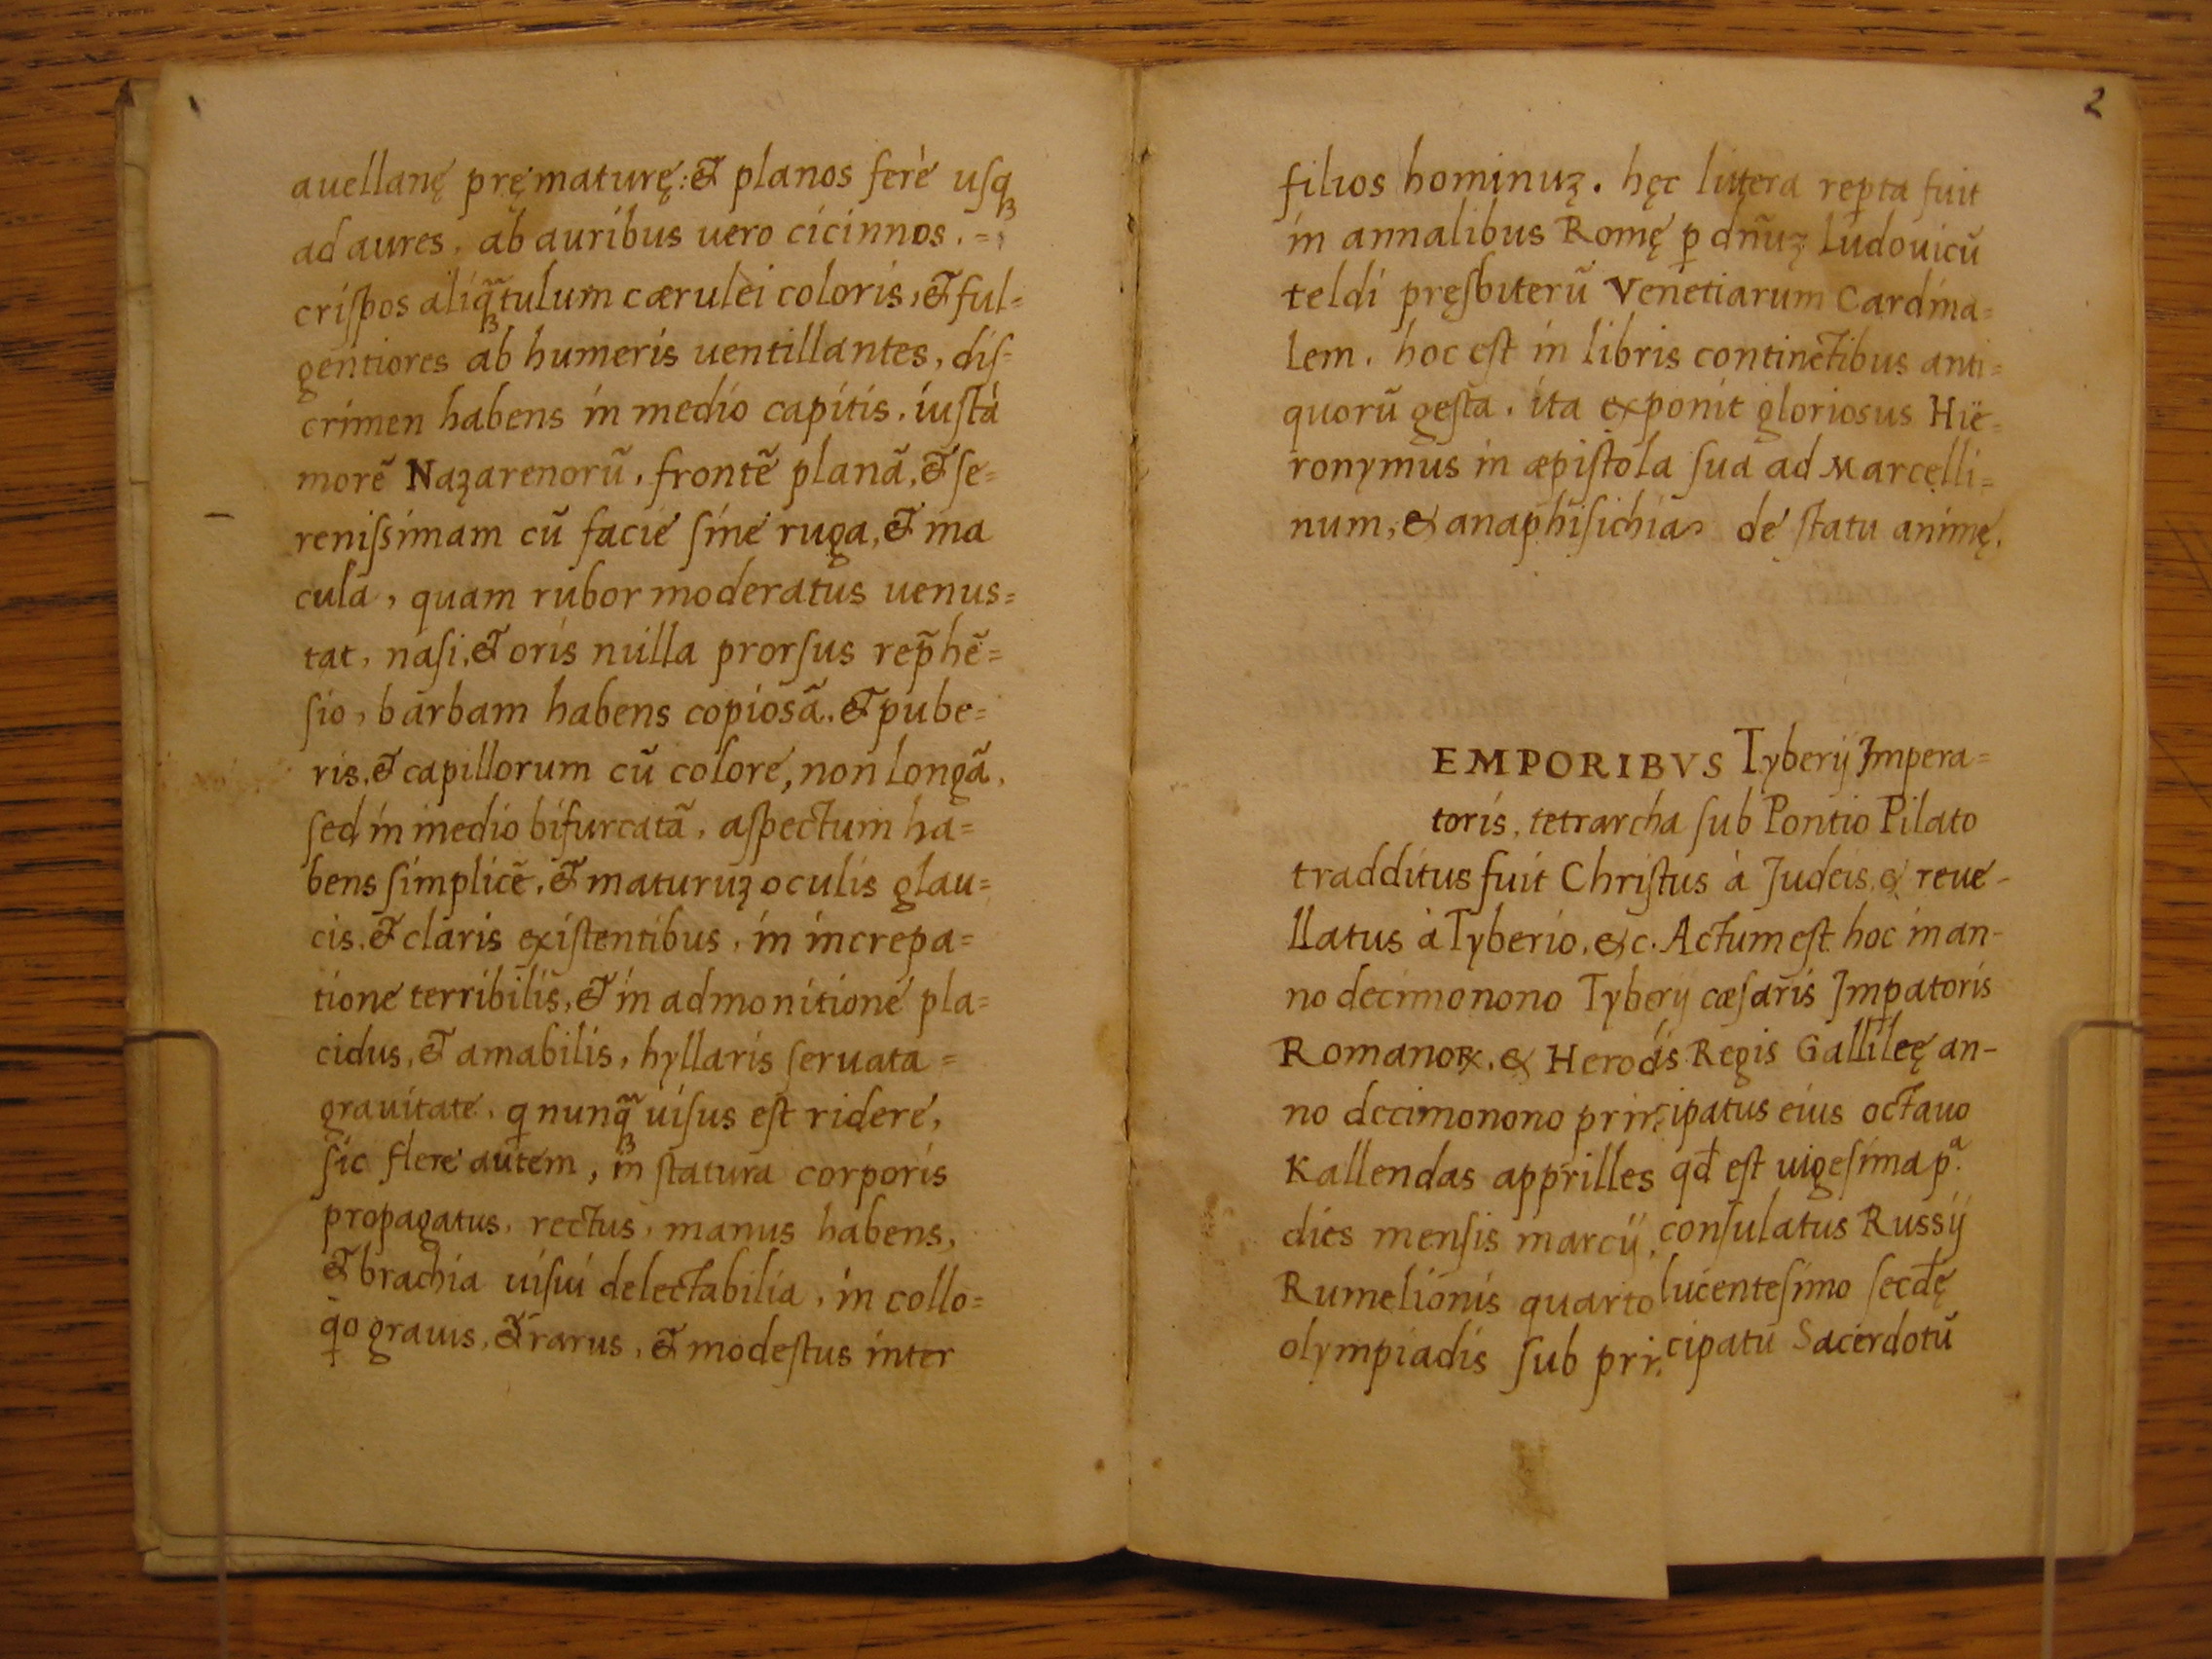 auellanę pręmaturę: & planos ferè usq̨
ad aures, ab auribus uero cicinnos. =
criſpos aliq̃tulum cærulei coloris, & ful=
gentiores ab humeris uentillantes, diſ=
crimen habens in medio capitis, iuſtà
morẽ Nazarenorũ, frontẽ planã, & ſe=
reniſsimam cũ facie ſine ruga, & ma
cula, quam rubor moderatus uenus=
tat, naſi, & oris nulla prorſus rep̃hẽ=
ſio, barbam habens copiosã, & pube=
ris, & capillorum cũ colore, non longã,
ſed in medio bifurcatã, aſpectum ha=
bens ſimplicẽ, & maturuꝫ oculis glau=
cis, & claris exiſtentibus, in increpa=
tione terribilis, & in admonitione pla=
cidus, & amabilis, hyllaris ſeruata =
grauitate, q nunq̃ uiſus eſt ridere,
ſic flere autem, in ſtatura corporis
propagatus, rectus, manus habens,
& brachia uiſui delectabilia, in collo=
q̇o grauis, & rarus, & modeſtus inter
2
filios hominuꝫ. hęc littera reꝑta fuit
in annalibus Romę ꝑ dñuꝫ Ludouicũ
teldi pręſbiterũ Venetiarum Cardina=
lem. hoc eſt in libris continẽtibus anti=
quorũ geſta. ita exponit glorioſus Hie=
ronymus in æpiſtola ſua ad Marcelli=
num, & anaphiſichia de ſtatu animę.
EMPORIBVS Tyberij Impera=
toris, tetrarcha ſub Pontio Pilato
tradditus fuit Chriſtus à Judeis, & reue-
llatus à Tyberio, &c. Actum eſt hoc in an-
no decimonono Tyberij cæſaris Imꝑatoris
Romanoꝝ, & Herodis Regis Gallileę an-
no decimonono principatus eius octauo
Kallendas apprilles qđ eſt uigeſima pª.
dies menſis marcij, conſulatus Russij
Rumelionis quarto lucenteſimo ſecdę
olympiadis ſub principatu Sacerdotũ